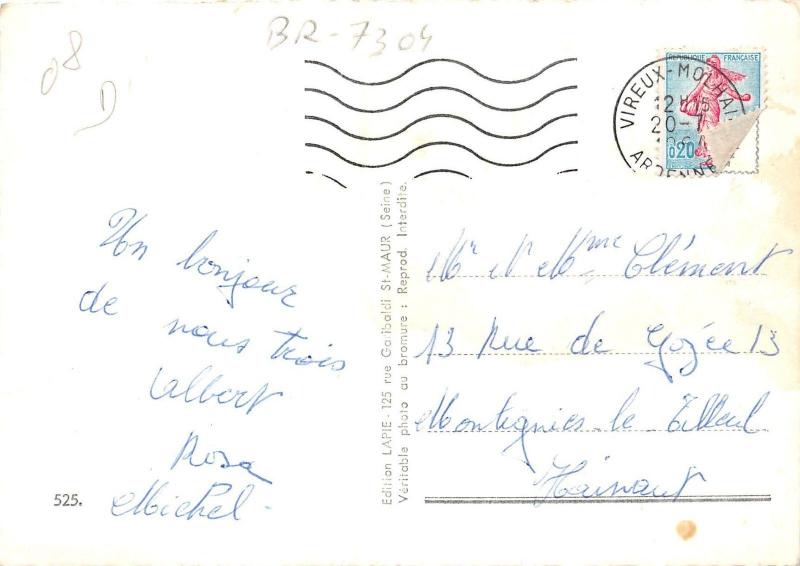 BR-7304
08
D
REPUBLIQUE FRANÇAISE
0,20
VIREUX-MOLHAI
12H15
20-7
ARDENNE
Un bonjour
de nous trois
Albert
Rosa
Michel.
525.
Edition LAPIE - 125 rue Garibaldi St-MAUR (Seine)
Véritable photo au bromure : Reprod. Interdite.
Mr et Mme Clément
13 Rue de Gozée 13
Montignies le Tilleul
Hainaut